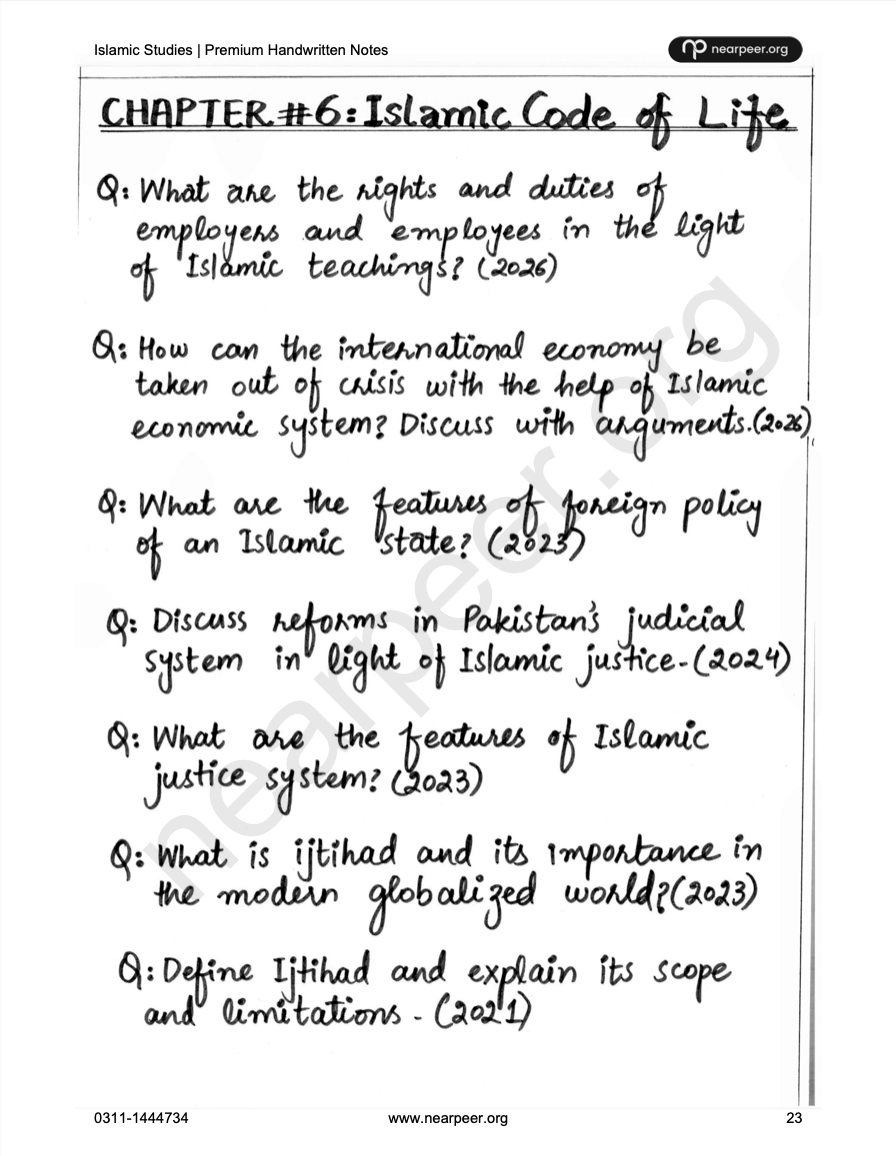 Islamic Studies | Premium Handwritten Notes
nearpeer.org
CHAPTER #6: Islamic Code of Life
Q: What are the rights and duties of
employers and employees in the light
of Islamic teachings? (2026)
Q: How can the international economy be
taken out of crisis with the help of Islamic
economic system? Discuss with arguments. (2026)
Q: What are the features of foreign policy
of an Islamic state? (2023)
Q: Discuss reforms in Pakistan's judicial
system in light of Islamic justice - (2024)
Q: What are the features of Islamic
justice system? (2023)
Q: What is ijtihad and its importance in
the modern globalized world? (2023)
Q: Define Ijtihad and explain its scope
and limitations - (2021)
nearpeer.org
0311-1444734
www.nearpeer.org
23